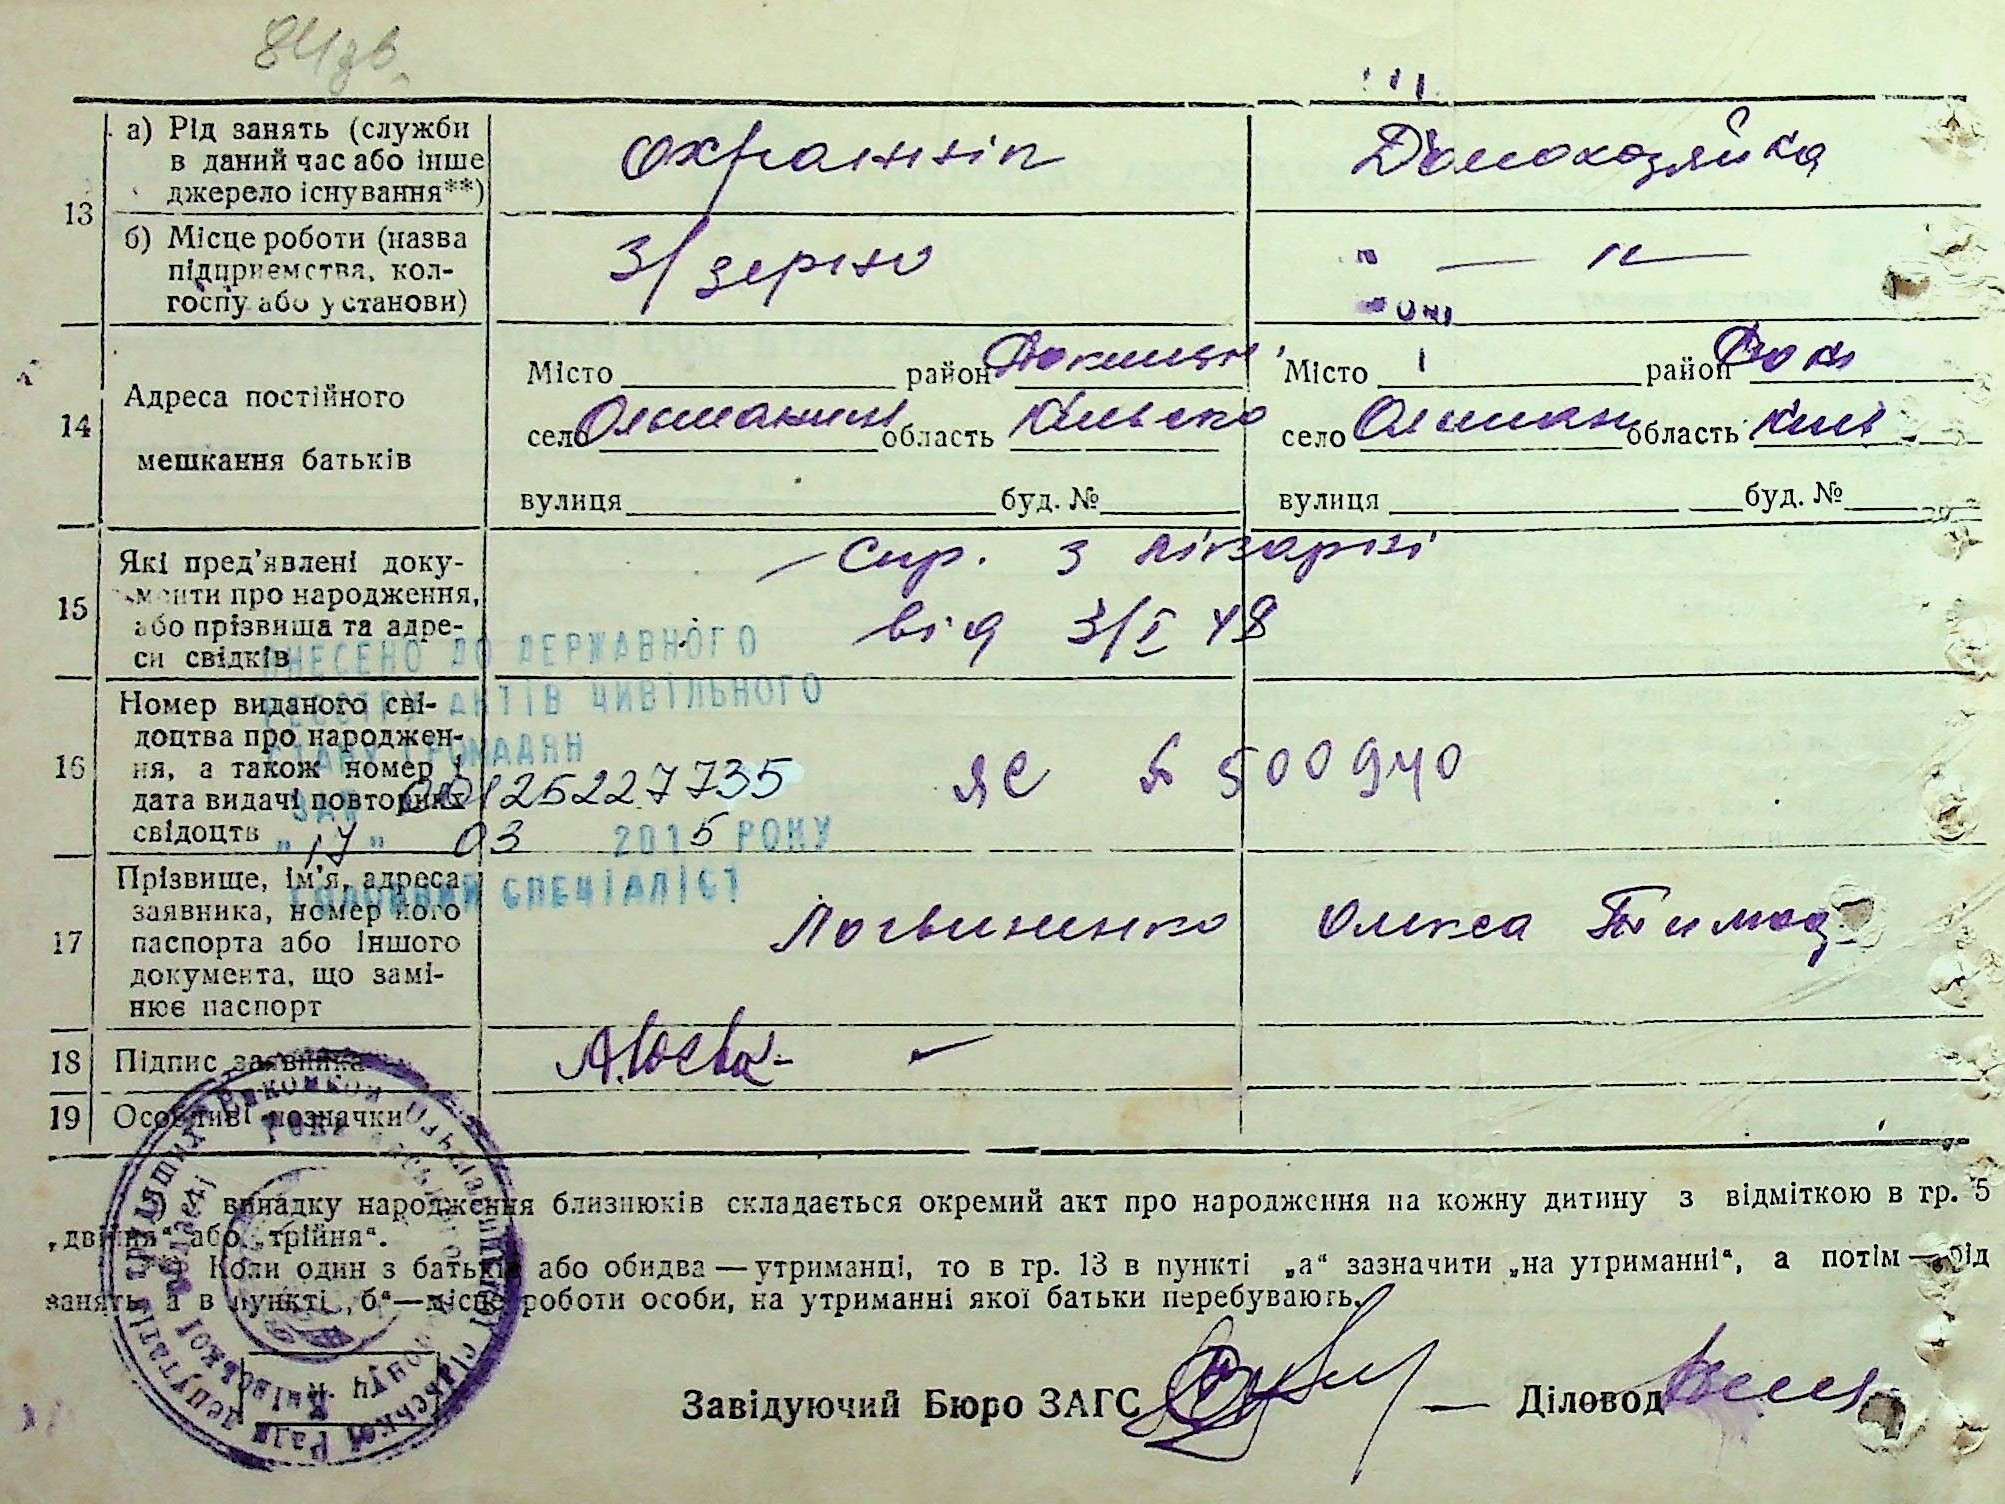 13
а) Рід занять (служби
в даний час або інше
джерело існування**)
Охраннік
Домохозяйка
б) Місце роботи (назва
підприємства, кол-
госпу або установи)
З/зерно
" — " —
14
Адреса постійного
мешкання батьків
Місто район
село область
вулиця буд. №
Місто район
село Ольшан область Київ
вулиця буд. №
15
Які пред'явлені доку-
менти про народження,
або прізвища та адре-
си свідків
Спр. з лікарні
від 3/I 48
ВНЕСЕНО ДО ДЕРЖАВНОГО
РЕЄСТРУ АКТІВ ЦИВІЛЬНОГО
СТАНУ ГРОМАДЯН
ЗА № 00125227735
" 17 " 03 2015 РОКУ
ГОЛОВНИЙ СПЕЦІАЛІСТ
16
Номер виданого сві-
доцтва про народжен-
ня, а також номер і
дата видачі повторних
свідоцтв
ЯС № 500940
17
Прізвище, ім'я, адреса
заявника, номер його
паспорта або іншого
документа, що замі-
нює паспорт
Логвиненко Олекса Тимоф
18
Підпис заявника
19
Особливі позначки
випадку народження близнюків складається окремий акт про народження на кожну дитину з відміткою в гр. 5
„двійня" або „трійня".
**) Коли один з батьків або обидва — утриманці, то в гр. 13 в пункті „а" зазначити „на утриманні", а потім — рід
занять, а в пункті „б"—місце роботи особи, на утриманні якої батьки перебувають.
Завідуючий Бюро ЗАГС
Діловод